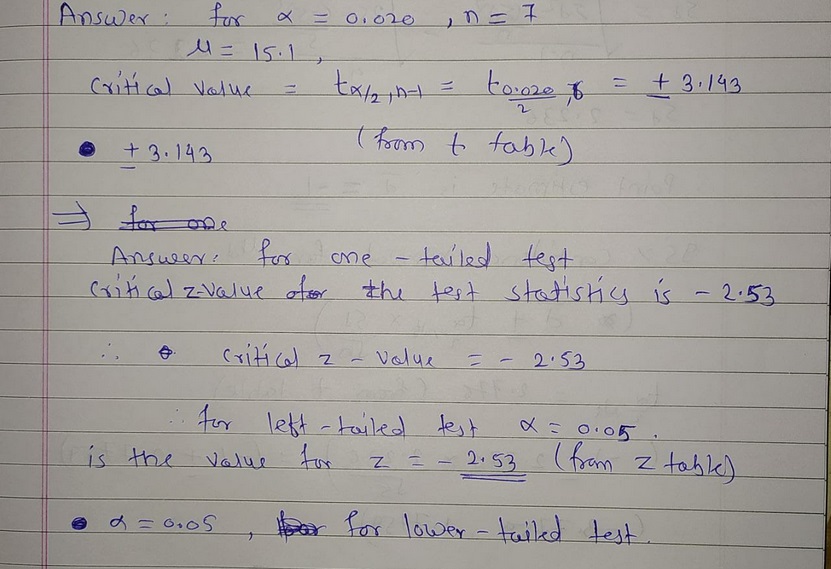 Answer: for α = 0.020 , n = 7
μ = 15.1 ,
Critical value = tα/2, n-1 = t0.020/2, 6 = ± 3.143
• ± 3.143 (from t table)
⇒ for one
Answer: for one - tailed test
Critical z-value of the test statistics is - 2.53
∴ Critical z - value = - 2.53
∴ for left-tailed test α = 0.05 .
is the value for z = - 2.53 (from z table)
• α = 0.05 , for lower-tailed test.